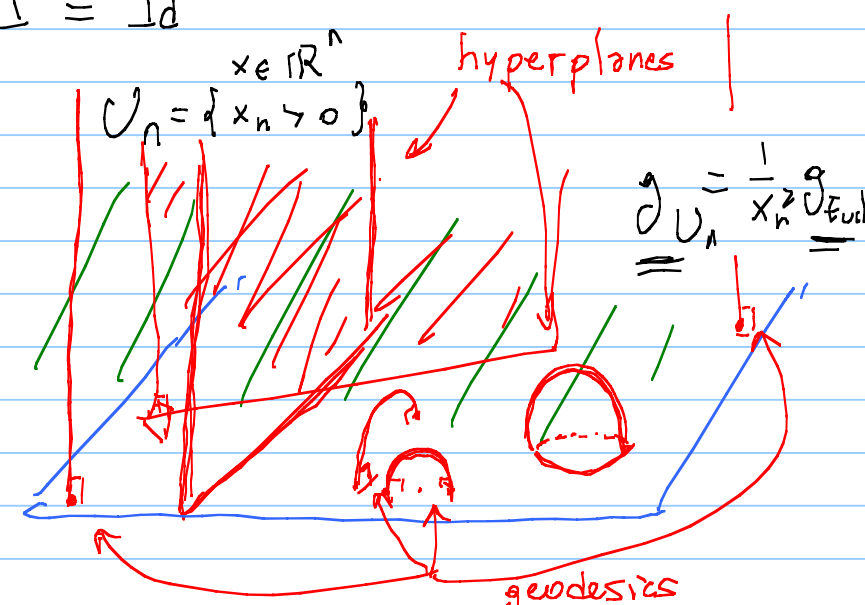 = Id
x ∈ ℝⁿ
hyperplanes
Uₙ = { xₙ > 0 }
g_{Uₙ} = 1/xₙ² g_{Eucl
geodesics